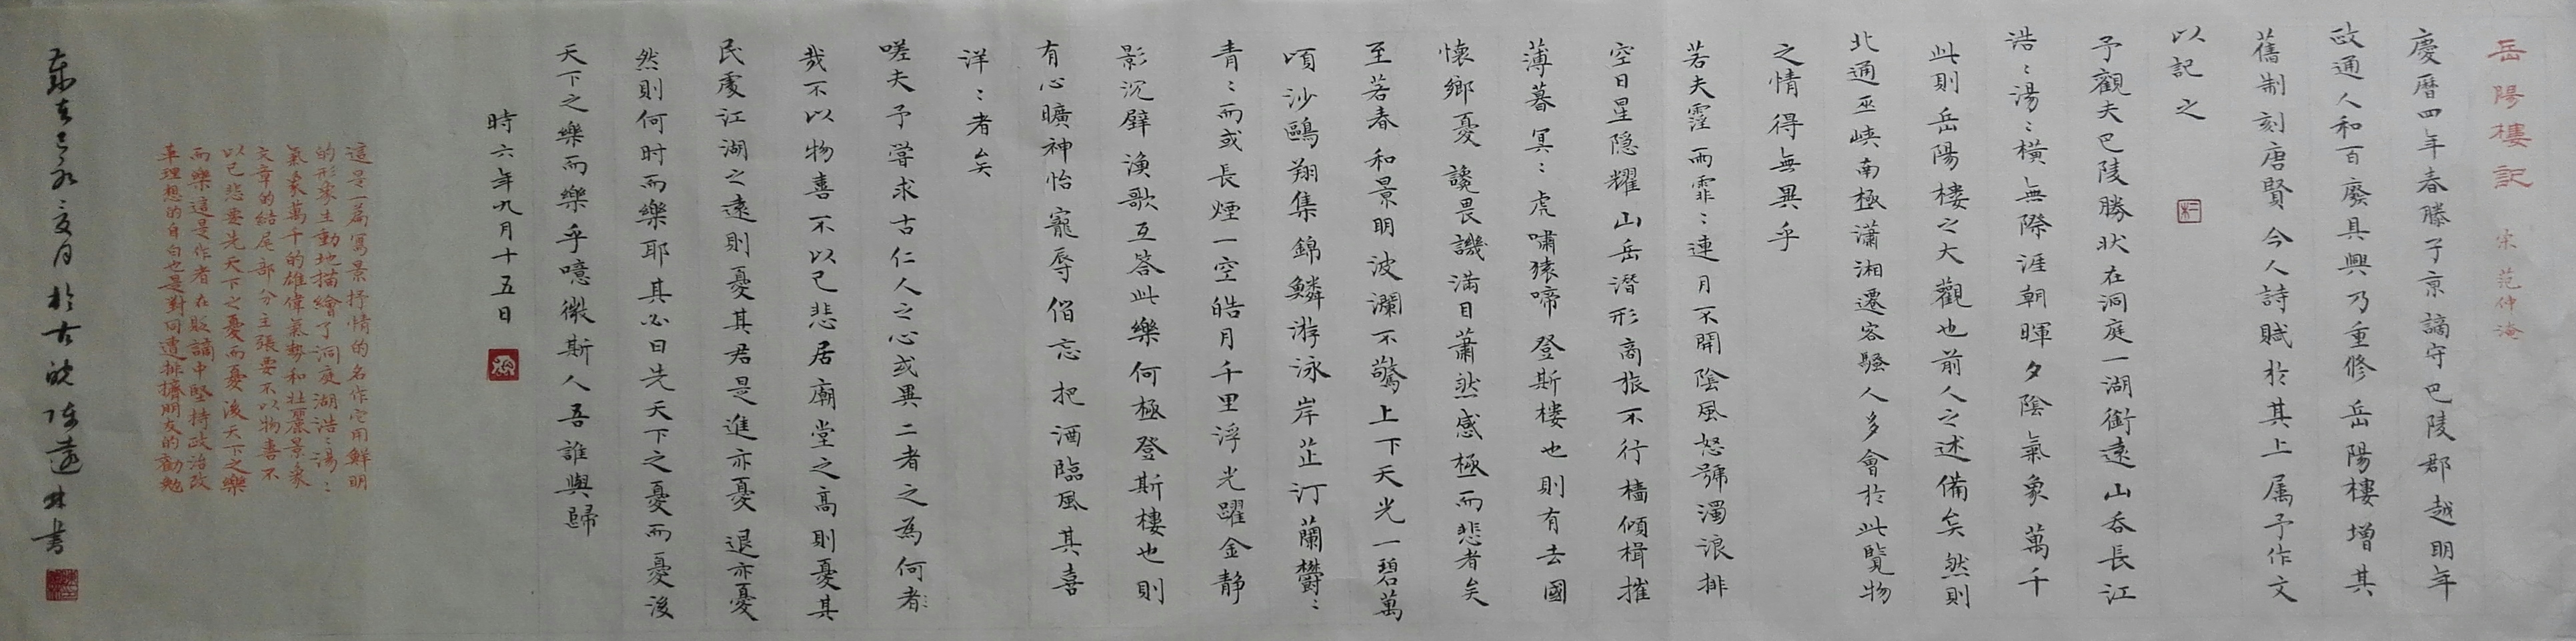 岳陽樓記 宋 范仲淹
慶曆四年春滕子京謫守巴陵郡越明年
政通人和百廢具興乃重修岳陽樓增其
舊制刻唐賢今人詩賦於其上属予作文
以記之
予觀夫巴陵勝狀在洞庭一湖銜遠山吞長江
浩〻湯〻橫無際涯朝暉夕陰氣象萬千
此則岳陽樓之大觀也前人之述備矣然則
北通巫峽南極瀟湘遷客騷人多會於此覽物
之情得無異乎
若夫霪雨霏〻連月不開陰風怒號濁浪排
空日星隐耀山岳潛形商旅不行檣傾楫摧
薄暮冥〻虎嘯猿啼登斯樓也則有去國
懷鄉憂讒畏譏滿目蕭然感極而悲者矣
至若春和景明波瀾不驚上下天光一碧萬
頃沙鷗翔集錦鱗游泳岸芷汀蘭鬱〻
青〻而或長煙一空皓月千里浮光躍金静
影沉璧漁歌互答此樂何極登斯樓也則
有心曠神怡寵辱偕忘把酒臨風其喜
洋〻者矣
嗟夫予嘗求古仁人之心或異二者之為何者
哉不以物喜不以己悲居廟堂之高則憂其
民處江湖之遠則憂其君是進亦憂退亦憂
然則何时而樂耶其必曰先天下之憂而憂後
天下之樂而樂乎噫微斯人吾誰與歸
時六年九月十五日
這是一篇寫景抒情的名作它用鮮明
的形象生動地描繪了洞庭湖浩〻湯〻
氣象萬千的雄偉氣勢和壯麗景象
文章的結尾部分主張要不以物喜不
以己悲要先天下之憂而憂後天下之樂
而樂這是作者在貶謫中堅持政治改
革理想的自白也是對同遭排擠朋友的勸勉
歲在己亥月於古陳遠林書